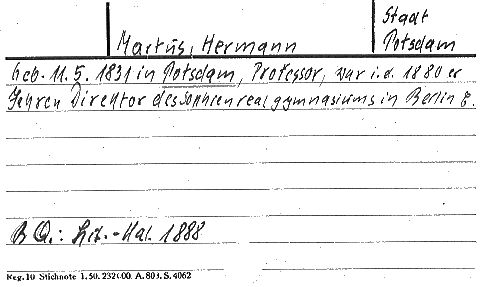 Stadt
Martus, Hermann Potsdam
Geb. 11.5. 1831 in Potsdam, Professor, war i.d. 1880 er
Jahren Direktor des Sophienrealgymnasiums in Berlin
B Q.: Lit.-Kal. 1888
Reg. 10 Stichnote 1. 50. 232600. A. 803. S. 4062